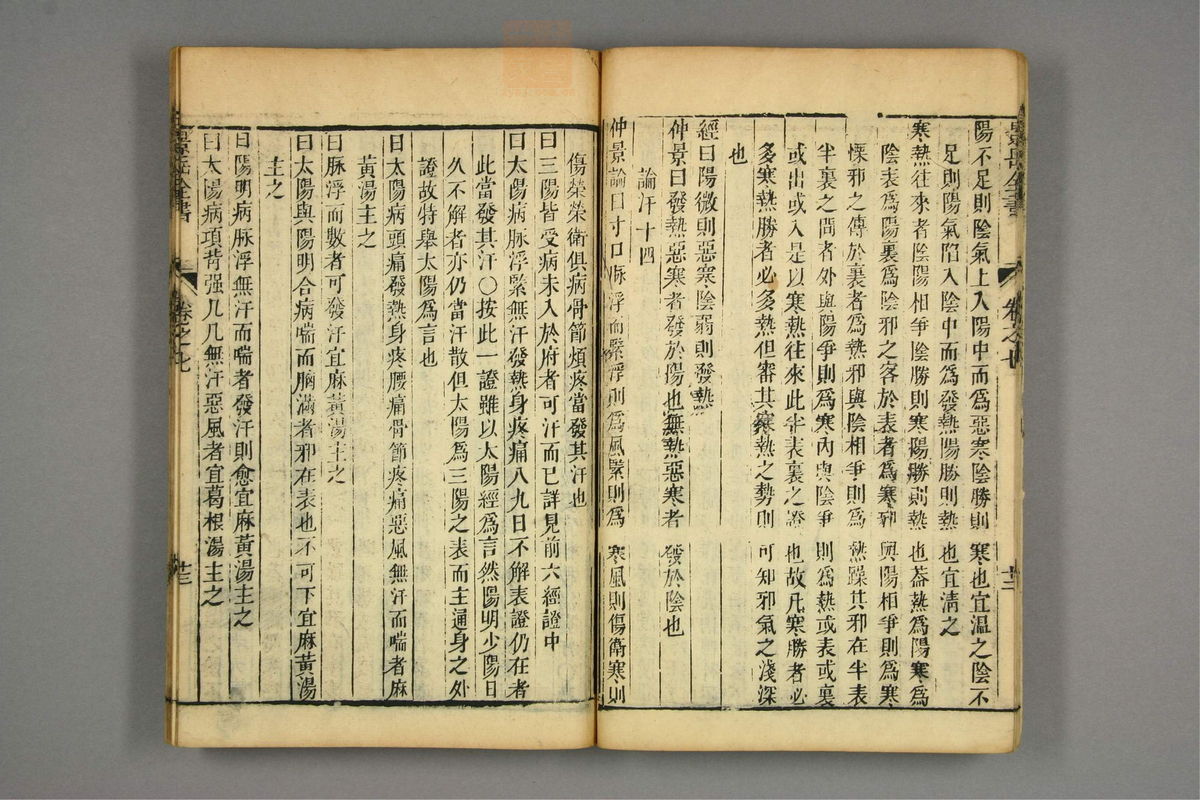 景岳全書 卷之七 廿二
陽不足則陰氣上入陽中而爲惡寒陰勝則寒也宜温之陰不
足則陽氣陷入陰中而爲發熱陽勝則熱也宜清之
寒熱往來者陰陽相爭陰勝則寒陽勝則熱也葢熱爲陽寒爲
陰表爲陽裏爲陰邪之客於表者爲寒邪與陽相爭則爲寒
慄邪之傳於裏者爲熱邪與陰相爭則爲熱躁其邪在半表
半裏之間者外與陽爭則爲寒內與陰爭則爲熱或表或裏
或出或入是以寒熱往來此半表裏之證也故凡寒勝者必
多寒熱勝者必多熱但審其寒熱之勢則可知邪氣之淺深
也
經曰陽微則惡寒陰弱則發熱
仲景曰發熱惡寒者發於陽也無熱惡寒者發於陰也
論汗十四
仲景論曰寸口脉浮而緊浮則爲風緊則爲寒風則傷衛寒則
傷榮榮衛俱病骨節煩疼當發其汗也
曰三陽皆受病未入於府者可汗而已詳見前六經證中
曰太陽病脉浮緊無汗發熱身疼痛八九日不解表證仍在者
此當發其汗〇按此一證雖以太陽經爲言然陽明少陽日
久不解者亦仍當汗散但太陽爲三陽之表而主通身之外
證故特舉太陽爲言也
曰太陽病頭痛發熱身疼腰痛骨節疼痛惡風無汗而喘者麻
黃湯主之
曰脉浮而數者可發汗宜麻黃湯主之
曰太陽與陽明合病喘而胸滿者邪在表也不可下宜麻黃湯
主之
曰陽明病脉浮無汗而喘者發汗則愈宜麻黃湯主之
曰太陽病項背强几几無汗惡風者宜葛根湯主之
景岳全書 卷之七 廿三